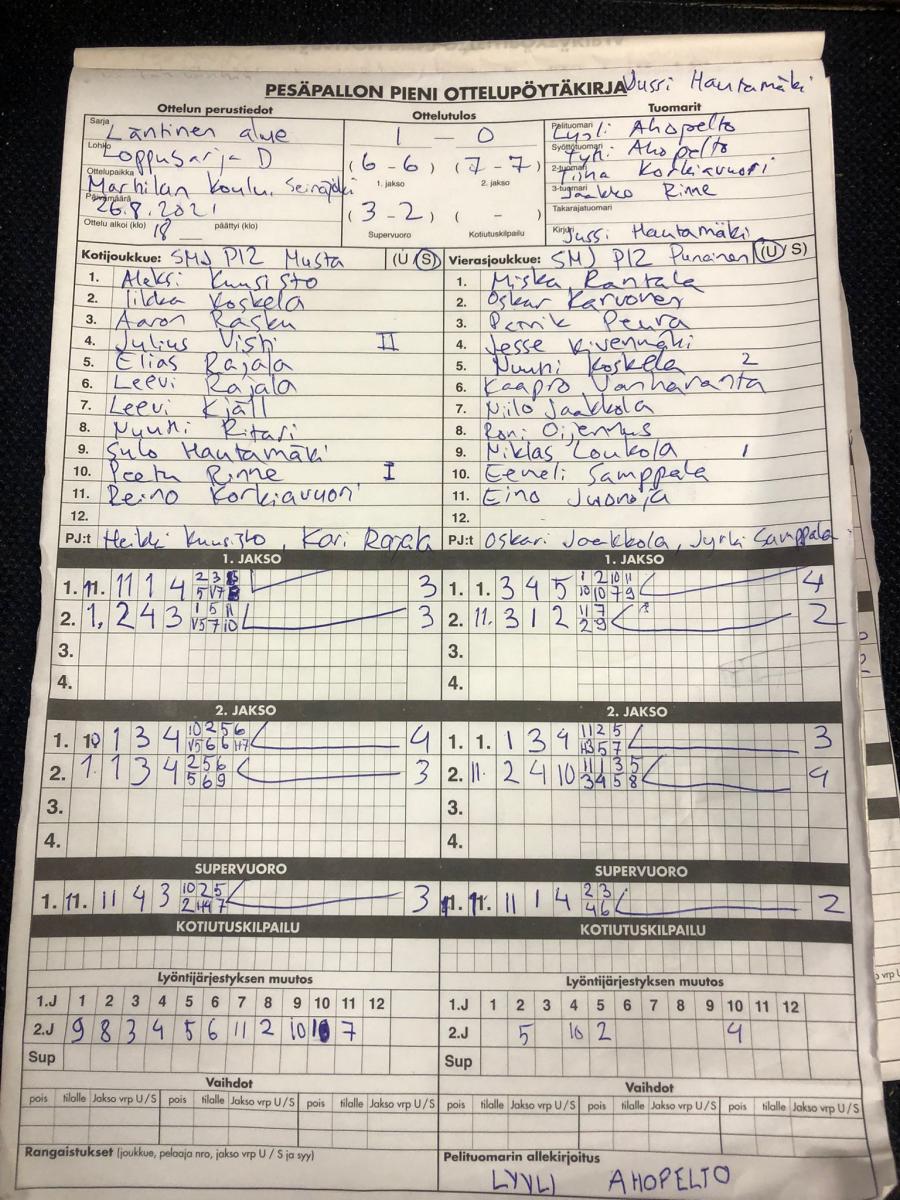 PESÄPALLON PIENI OTTELUPÖYTÄKIRJA Jussi Hautamäki
Ottelun perustiedot
Sarja Läntinen alue
Lohko Loppusarja D
Ottelupaikka Marhilan koulu, Seinäjoki
Päivämäärä 26.8.2021
Ottelu alkoi (klo) 18 päättyi (klo)
Ottelutulos
1 — 0
(6 - 6) (7 - 7)
1. jakso 2. jakso
(3 - 2) ( - )
Supervuoro Kotiutuskilpailu
Tuomarit
Pelituomari Lyyli Ahopelto
Syöttötuomari Tyyni Ahopelto
2-tuomari Korkiavuori
3-tuomari Jaakko Rinne
Takarajatuomari
Kirjuri Jussi Hautamäki
Kotijoukkue: SMJ P12 Musta (U S)
1. Aleksi Kuusisto
2. Iikka Koskela
3. Aaron Rasku
4. Julius Visti II
5. Elias Rajala
6. Leevi Rajala
7. Leevi Kjäll
8. Nyytti Ritari
9. Sulo Hautamäki
10. Peetu Rinne I
11. Reino Korkiavuori
12.
PJ:t Heikki Kuusisto, Kari Rajala
Vierasjoukkue: SMJ P12 Punainen (U S)
1. Miska Rantala
2. Oskar Karvonen
3. Patrik Peura
4. Jesse Kivenmäki
5. Nuutti Koskela 2
6. Kaapro Vanharanta
7. Niilo Jaakkola
8. Roni
9. Niklas Loukola 1
10. Eemeli Samppala
11. Eino Juonoja
12.
PJ:t Oskari Jaakkola, Jyrki Samppala
1. JAKSO
1. 11. 11 1 4 3
2. 1. 2 4 3 3
3.
4.
1. JAKSO
1. 1. 3 4 5 4
2. 11. 3 1 2 2
3.
4.
2. JAKSO
1. 10 1 3 4 4
2. 1. 1 3 4 3
3.
4.
2. JAKSO
1. 1. 1 3 4 3
2. 11. 2 4 10 4
3.
4.
SUPERVUORO
1. 11. 11 4 3 3
SUPERVUORO
1. 11. 11 1 4 2
KOTIUTUSKILPAILU
KOTIUTUSKILPAILU
Lyöntijärjestyksen muutos
1.J 1 2 3 4 5 6 7 8 9 10 11 12
2.J 9 8 3 4 5 6 11 2 10 7
Sup
Lyöntijärjestyksen muutos
1.J 1 2 3 4 5 6 7 8 9 10 11 12
2.J 5 10 2 4
Sup
Vaihdot
pois tilalle Jakso vrp U / S pois tilalle Jakso vrp U / S pois tilalle Jakso vrp U / S
Vaihdot
pois tilalle Jakso vrp U / S pois tilalle Jakso vrp U / S pois tilalle Jakso vrp U / S
Rangaistukset (joukkue, pelaaja nro, jakso vrp U / S ja syy)
Pelituomarin allekirjoitus
LYYLI AHOPELTO